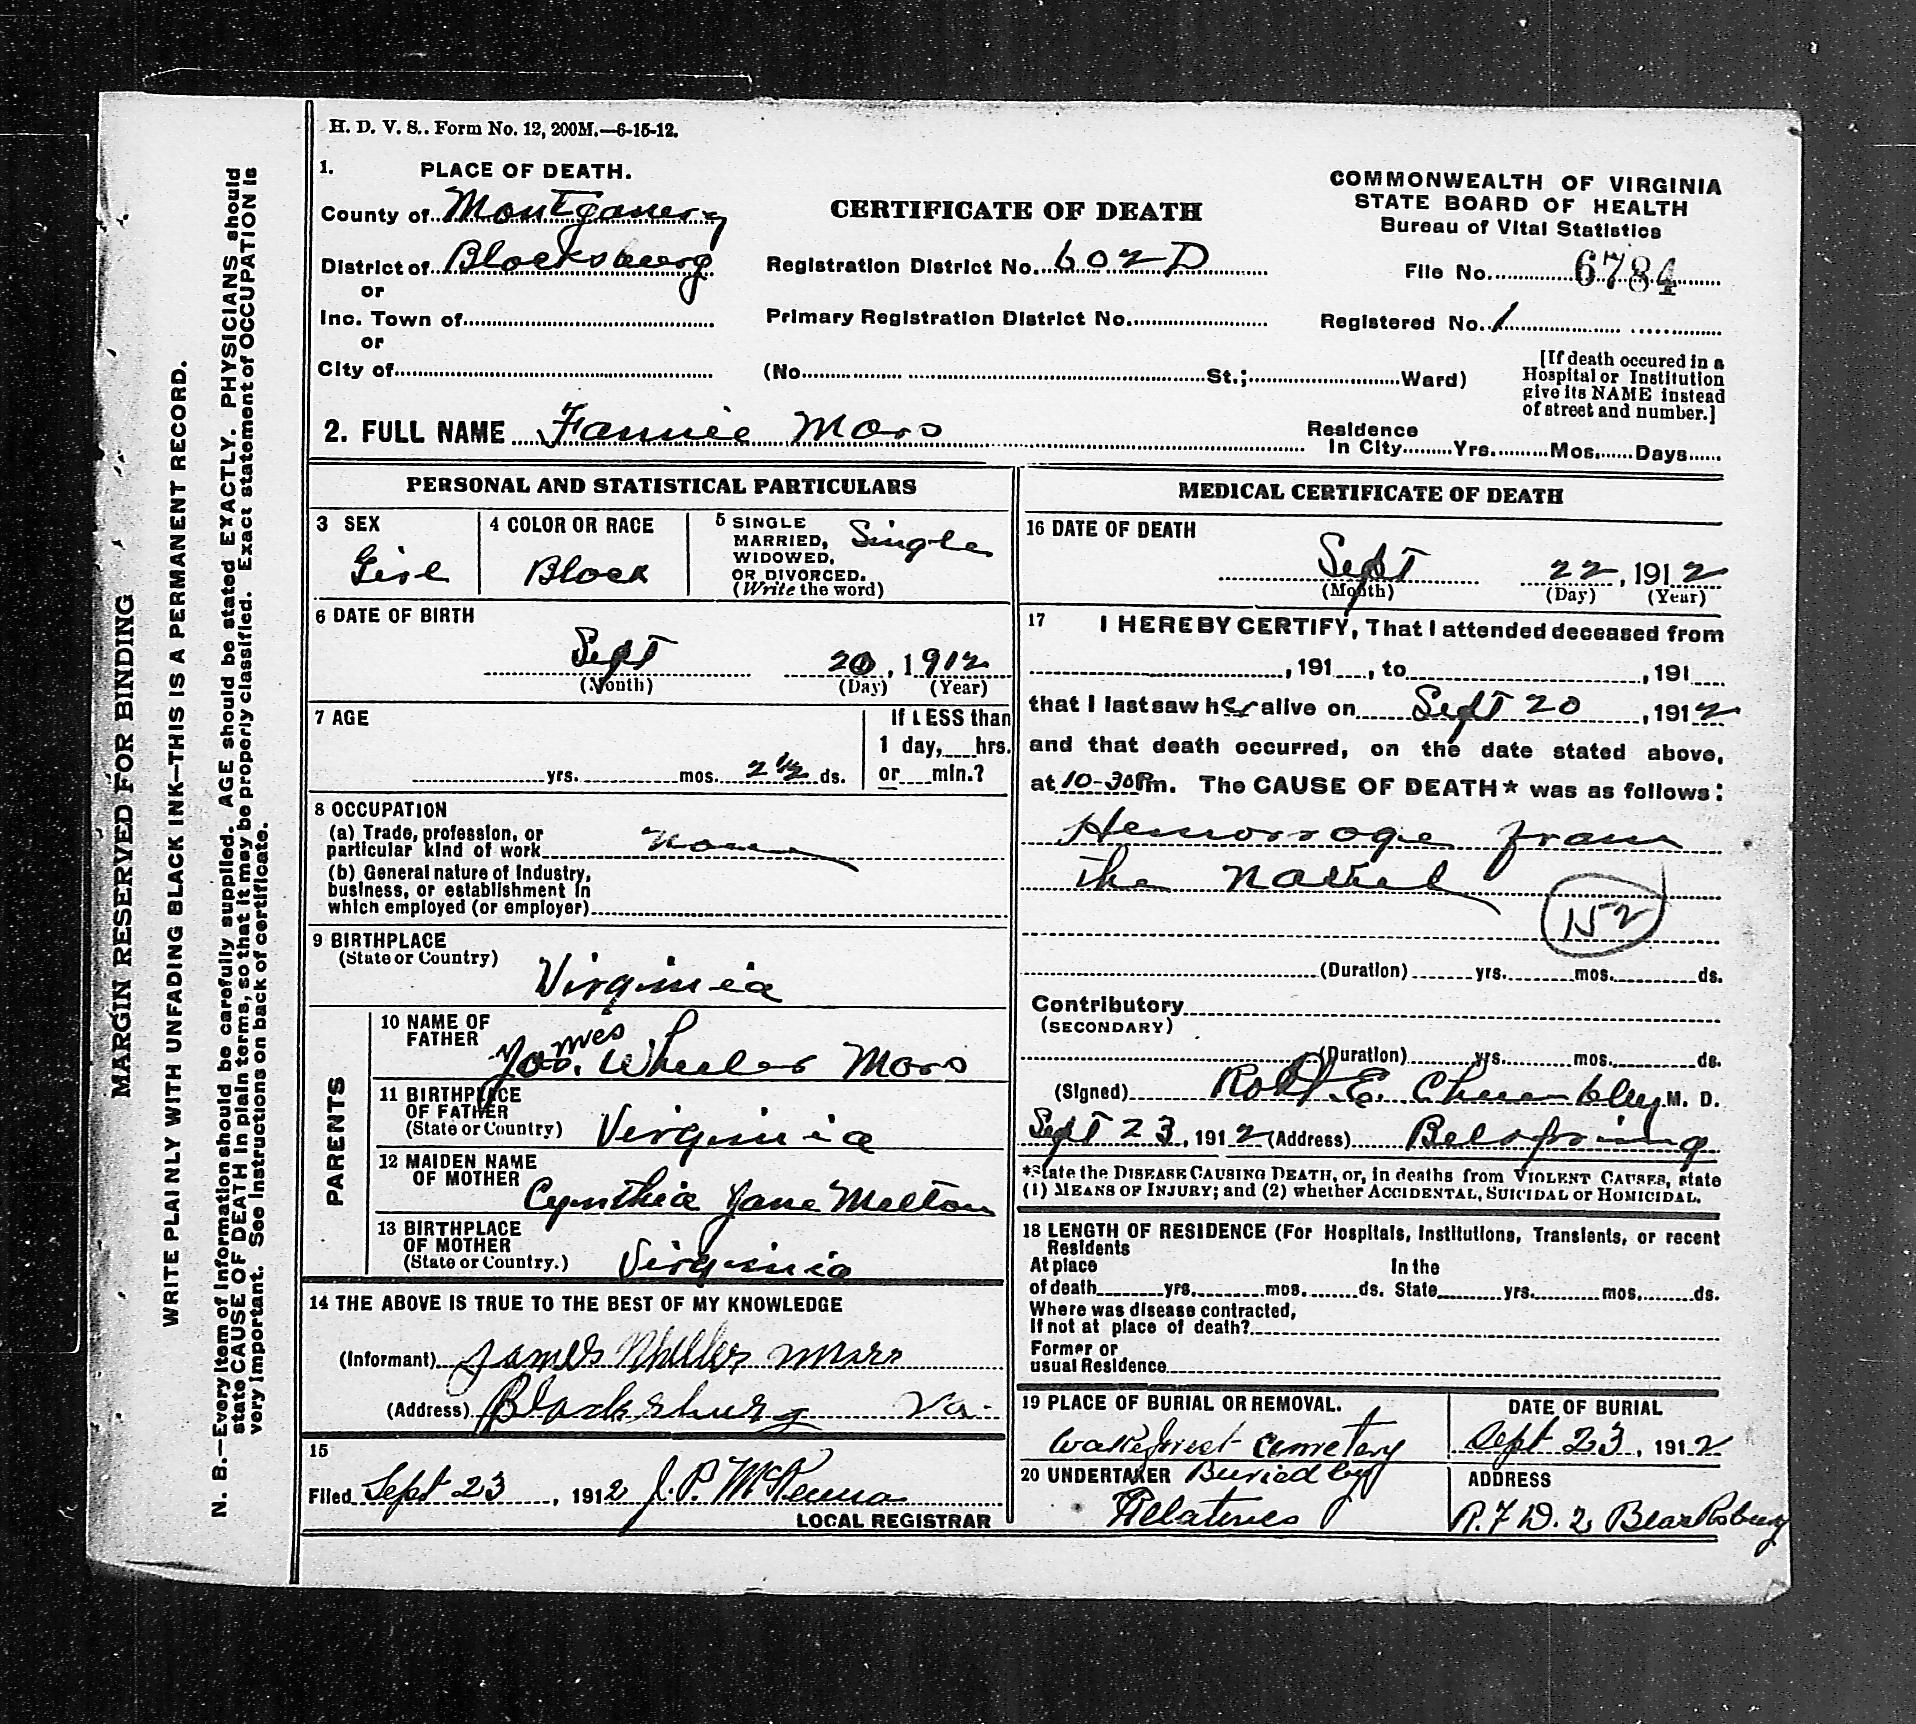 H. D. V. S.. Form No. 12, 200M.—6-15-12.
1. PLACE OF DEATH.
County of Montgomery
District of Blacksburg
or
Inc. Town of
or
City of
CERTIFICATE OF DEATH
Registration District No. 602 D
Primary Registration District No.
(No. St.; Ward)
COMMONWEALTH OF VIRGINIA
STATE BOARD OF HEALTH
Bureau of Vital Statistics
File No. 6784
Registered No. 1
[If death occured in a
Hospital or Institution
give its NAME instead
of street and number.]
2. FULL NAME Fannie Mars
Residence
In City Yrs. Mos. Days
PERSONAL AND STATISTICAL PARTICULARS
3 SEX
Girl
4 COLOR OR RACE
Black
5 SINGLE
MARRIED,
WIDOWED,
OR DIVORCED.
(Write the word)
Single
6 DATE OF BIRTH
Sept 20, 1912
(Month) (Day) (Year)
7 AGE
yrs. mos. 2 1/2 ds.
If LESS than
1 day, hrs.
or min.?
8 OCCUPATION
(a) Trade, profession, or
particular kind of work none
(b) General nature of Industry,
business, or establishment in
which employed (or employer)
9 BIRTHPLACE
(State or Country)
Virginia
PARENTS
10 NAME OF
FATHER
Jas. Wheeler Mars
mes
11 BIRTHPLACE
OF FATHER
(State or Country)
Virginia
12 MAIDEN NAME
OF MOTHER
Cynthia Jane Melton
13 BIRTHPLACE
OF MOTHER
(State or Country.)
Virginia
14 THE ABOVE IS TRUE TO THE BEST OF MY KNOWLEDGE
(Informant) James
(Address) Blacksburg Va.
15
Filed Sept 23, 1912 J. P. McKenna
LOCAL REGISTRAR
MEDICAL CERTIFICATE OF DEATH
16 DATE OF DEATH
Sept 22, 1912
(Month) (Day) (Year)
17 I HEREBY CERTIFY, That I attended deceased from
, 191 , to , 191
that I last saw her alive on Sept 20, 1912
and that death occurred, on the date stated above,
at 10-30 Pm. The CAUSE OF DEATH* was as follows:
Hemorrage from
the navel
152
(Duration) yrs. mos. ds.
Contributory
(SECONDARY)
(Duration) yrs. mos. ds.
(Signed) Robt. E. Chumbley M. D.
Sept 23, 1912 (Address) Belspring
*State the DISEASE CAUSING DEATH, or, in deaths from VIOLENT CAUSES, state
(1) MEANS OF INJURY; and (2) whether ACCIDENTAL, SUICIDAL or HOMICIDAL.
18 LENGTH OF RESIDENCE (For Hospitals, Institutions, Transients, or recent
Residents
At place In the
of death yrs. mos. ds. State yrs. mos. ds.
Where was disease contracted,
If not at place of death?
Former or
usual Residence
19 PLACE OF BURIAL OR REMOVAL.
Wakeforest Cemetery
DATE OF BURIAL
Sept 23, 1912
20 UNDERTAKER Buried by
Relatives
ADDRESS
R.F.D. 2
MARGIN RESERVED FOR BINDING
WRITE PLAINLY WITH UNFADING BLACK INK—THIS IS A PERMANENT RECORD.
N. B.—Every item of information should be carefully supplied. AGE should be stated EXACTLY. PHYSICIANS should
state CAUSE OF DEATH in plain terms, so that it may be properly classified. Exact statement of OCCUPATION is
very important. See instructions on back of certificate.